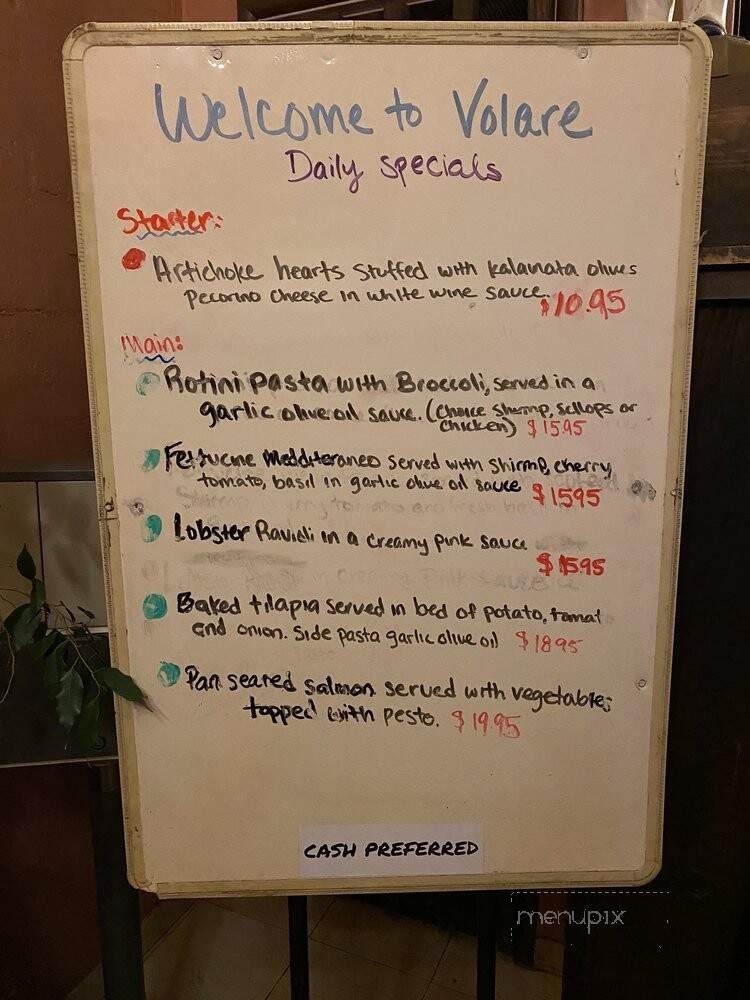 Welcome to Volare
Daily specials
Starter:
Artichoke hearts stuffed with kalamata olives
pecorino cheese in white wine sauce.
$10.95
Main:
Rotini pasta with Broccoli, served in a
garlic olive oil sauce. (choice shrimp, scllops or
chicken) $15.95
Fettucine Medditeraneo served with shirmp, cherry
tomato, basil in garlic olive oil sauce $1595
Lobster Ravioli in a creamy pink sauce
$15.95
Baked tilapia served in bed of potato, tomat
and onion. Side pasta garlic olive oil $1895
Pan seared salmon served with vegetables
topped with pesto. $19.95
CASH PREFERRED
menupix